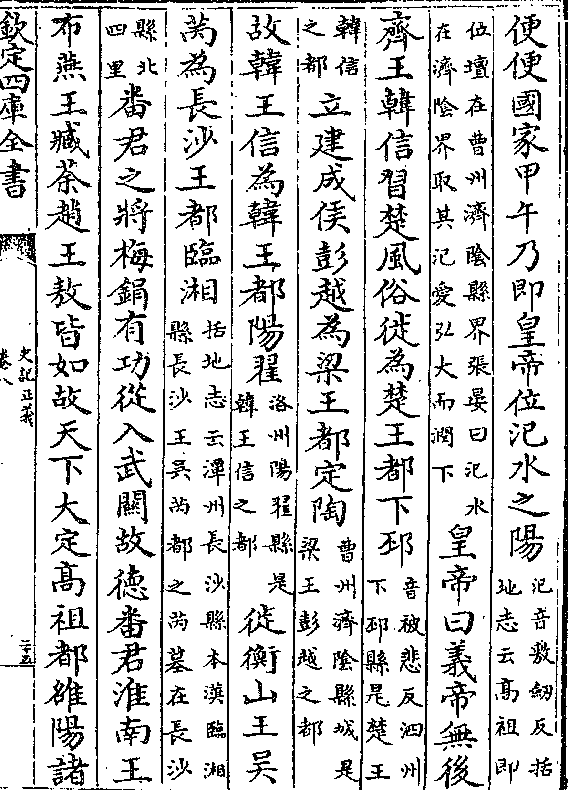 便便國家甲午乃即皇帝位氾水之陽氾音敷劒反括地志云髙祖即
位壇在曹州濟隂縣界張晏曰氾水在濟隂界取其氾愛弘大而潤下皇帝曰義帝無後
齊王韓信習楚風俗徙為楚王都下邳音被悲反泗州下邳縣是楚王
韓信之都立建成侯彭越為梁王都定陶曹州濟隂縣城是梁王彭越之都
故韓王信為韓王都陽翟洛州陽翟縣是韓王信之都徙衡山王吳
芮為長沙王都臨湘括地志云潭州長沙縣本漢臨湘縣長沙王吳芮都之芮墓在長沙
縣北四里番君之將梅鋗有功從入武關故德番君淮南王
布燕王臧荼趙王敖皆如故天下大定髙祖都雒陽諸
欽定四庫全書
史記正義
卷八
二十五